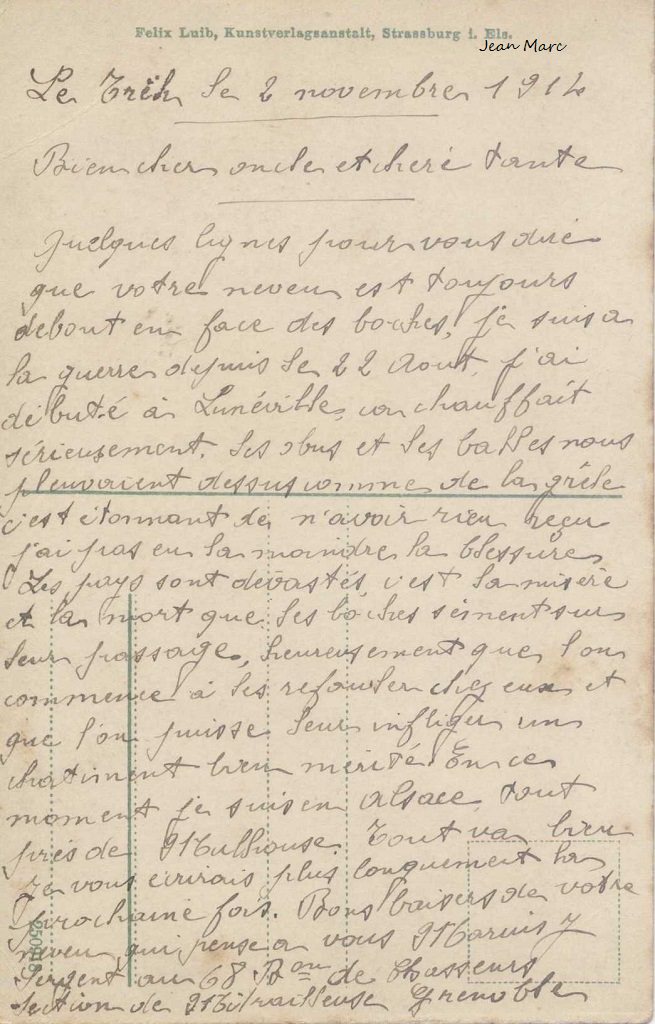 Felix Luib, Kunstverlagsanstalt, Strassburg i. Els.
Jean Marc
Le Tréh le 2 novembre 1914
Bien cher oncle et cheré tante
Quelques lignes pour vous dire
que votre neveu est toujours
debout en face des boches, je suis a
la guerre depuis le 22 Aout, j'ai
débuté à Lunéville, ca chauffait
sérieusement. les obus et les balles nous
pleuvaient dessus comme de la grêle
c'est étonnant de n'avoir rien reçu
j'ai pas eu la moindre la blessure
Les pays sont dévastés, c'est la misère
et la mort que les boches sèment sur
leur passage, heureusement que l'on
commence à les refouler chez eux et
que l'on puisse leur infliger un
chatiment bien mérité. En ce
moment je suis en Alsace, tout
près de Mulhouse. Tout va bien
Je vous écrirais plus longuement la
prochaine fois. Bons baisers de votre
neveu qui pense a vous Marius J
Sergent au 68 Bon de Chasseurs
Section de Mitrailleuse Grenoble